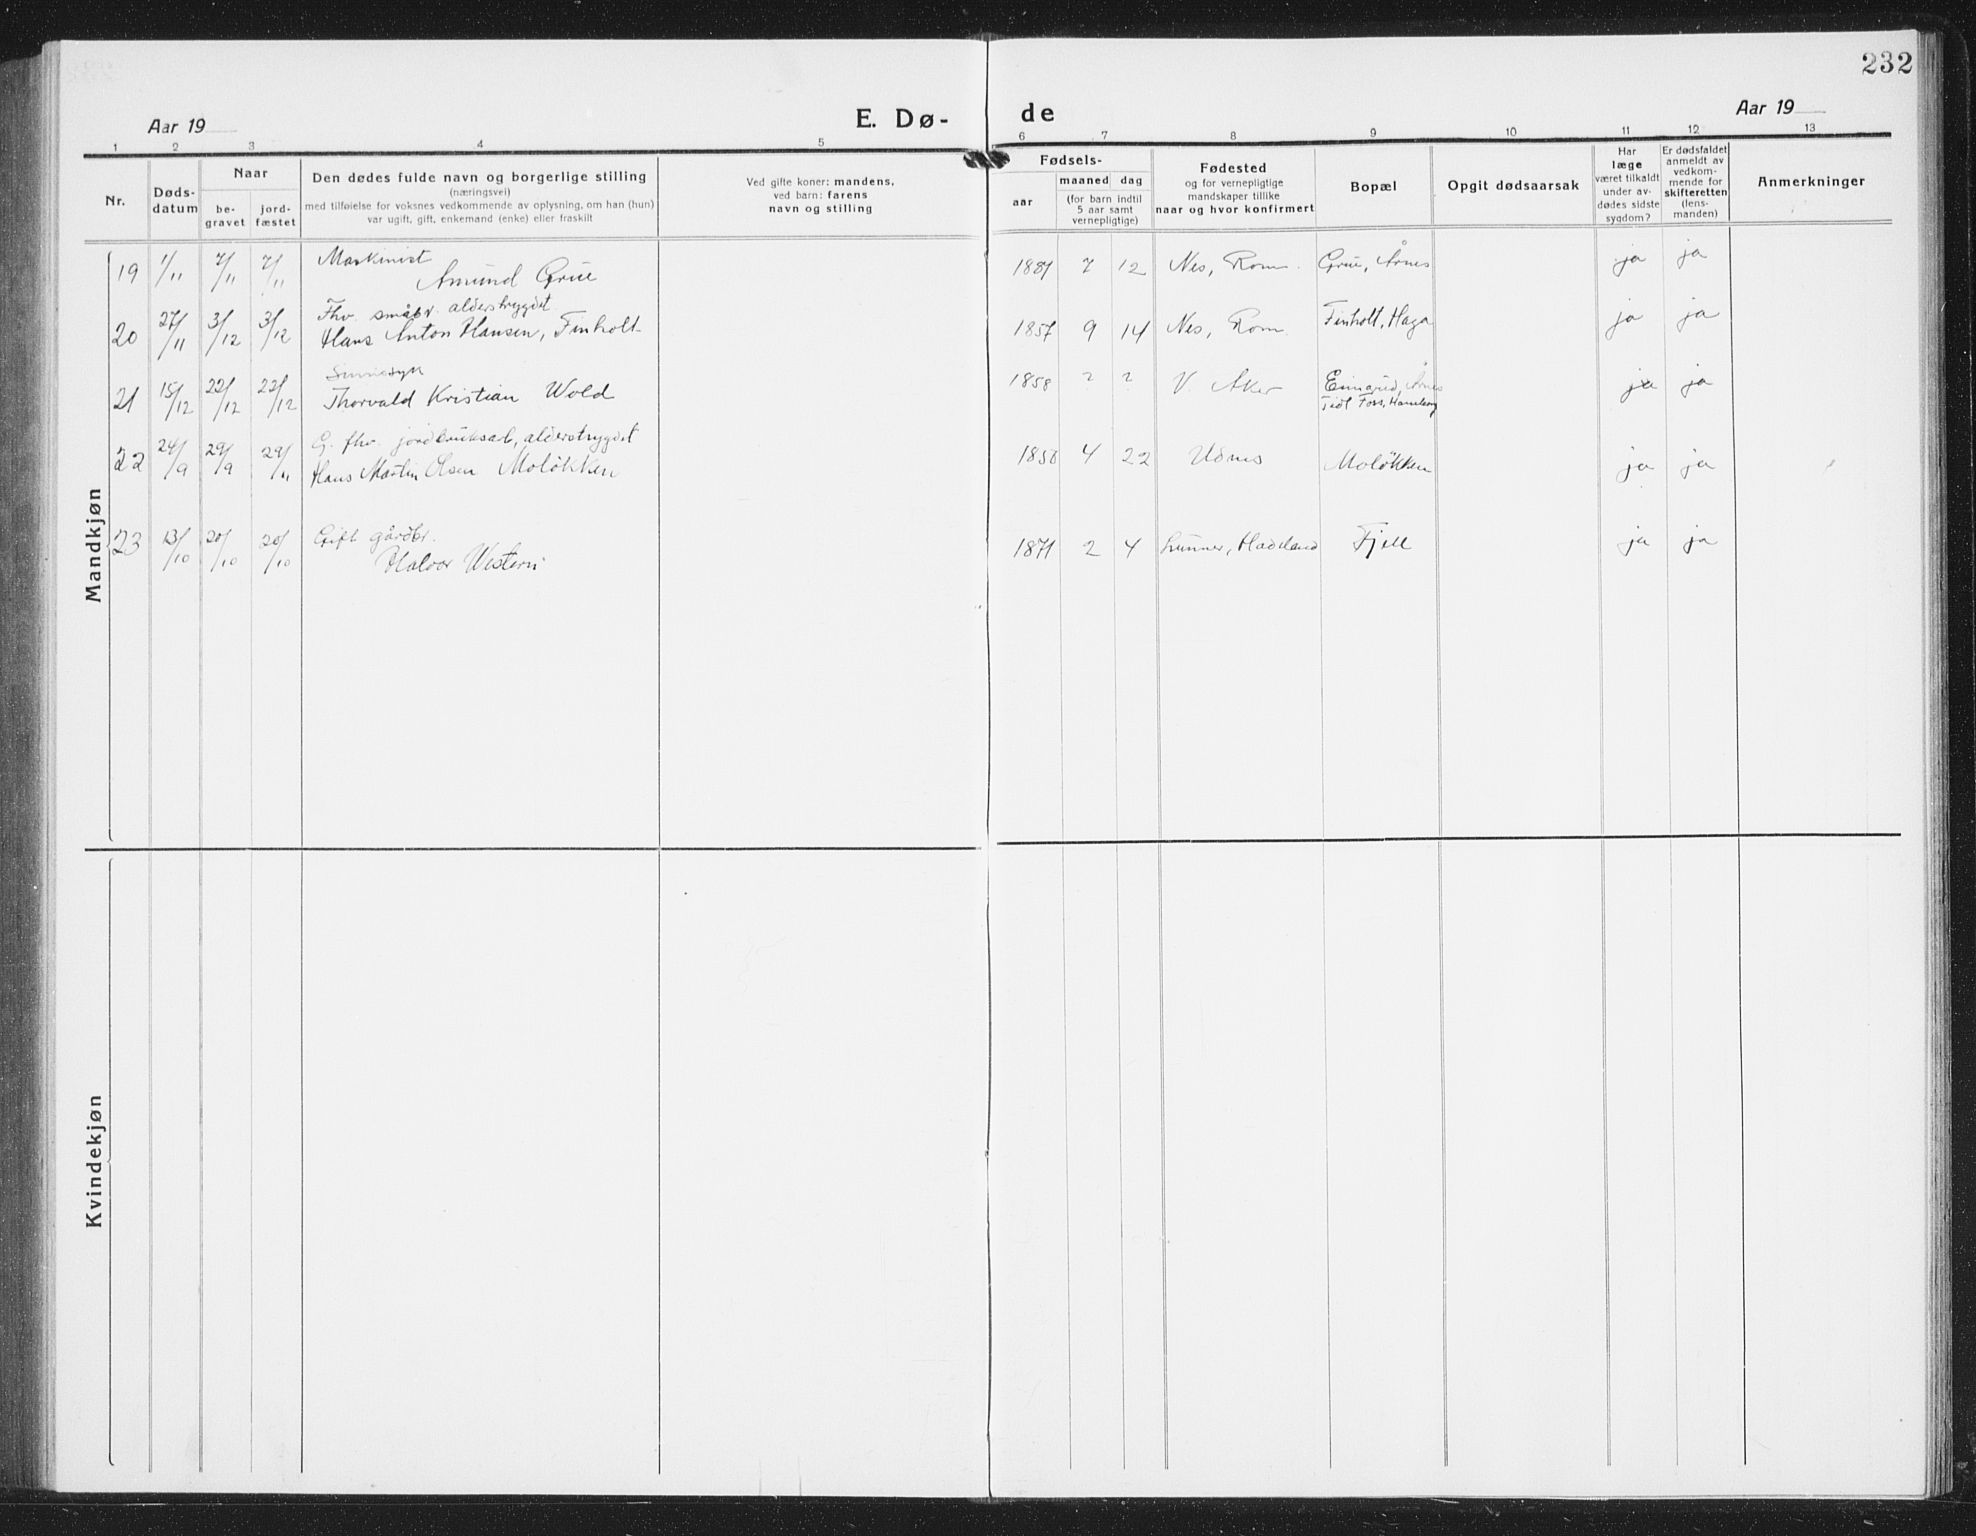 232
Aar 19
E. Dø-
de
Aar 19
1 2 3 4 5 6 7 8 9 10 11 12 13
Nr.
Døds-
datum
Naar
be-
gravet
jord-
fæstet
Den dødes fulde navn og borgerlige stilling
(næringsvei)
med tilføielse for voksnes vedkommende av oplysning, om han (hun)
var ugift, gift, enkemand (enke) eller fraskilt
Ved gifte koner: mandens,
ved barn: farens
navn og stilling
Fødsels-
aar
maaned dag
(for barn indtil
5 aar samt
vernepligtige)
Fødested
og for vernepligtige
mandskaper tillike
naar og hvor konfirmert
Bopæl
Opgit dødsaarsak
Har
læge
været tilkaldt
under av-
dødes sidste
sygdom?
Er dødsfaldet
anmeldt av
vedkom-
mende for
skifteretten
(lens-
manden)
Anmerkninger
Mandkjøn
Maskinist
19 1/11 7/11 7/11 Amund Grue 1887 7 12 Nes, Rom. Grue, Årnes ja ja
Fhv. småbr. alderstrygdet
20 27/11 3/12 3/12 Hans Anton Hansen, Finholt 1857 9 14 Nes, Rom. Finholt, Haga ja ja
Sinnssyk
21 15/12 22/12 22/12 Thorvald Kristian Wold 1858 ? ? V. Aker Årnes ja ja
Tidl Foss,
G. fhv. jordbruksarb, alderstrygdet
22 24/9 29/9 29/11 Hans Martin Olsen Moløkken 1858 4 22 Udnes Moløkken ja ja
Gift gårdbr.
23 13/10 20/10 20/10 Halvor Western 1871 2 4 Lunner, Hadeland Fjell ja ja
Kvindekjøn